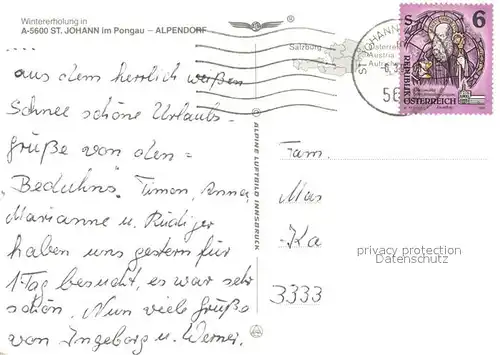 Wintererholung in
A-5600 ST. JOHANN im Pongau – ALPENDORF
aus dem herrlich weißen
Schnee schöne Urlaubs-
grüße von den
"Beduhns". Timon, Anna,
Marianne u. Rüdiger
haben uns gestern für
1 Tag besucht, es war sehr
schön. Nun viele Grüße
von Ingeborg u. Werner.
ALPINE LUFTBILD INNSBRUCK
Salzburg
ST. JOHANN
Österreich
Austria
Autriche
56
6
S
REPUBLIK
ÖSTERREICH
Fam.
Mas
Ka
3333
privacy protection
Datenschutz